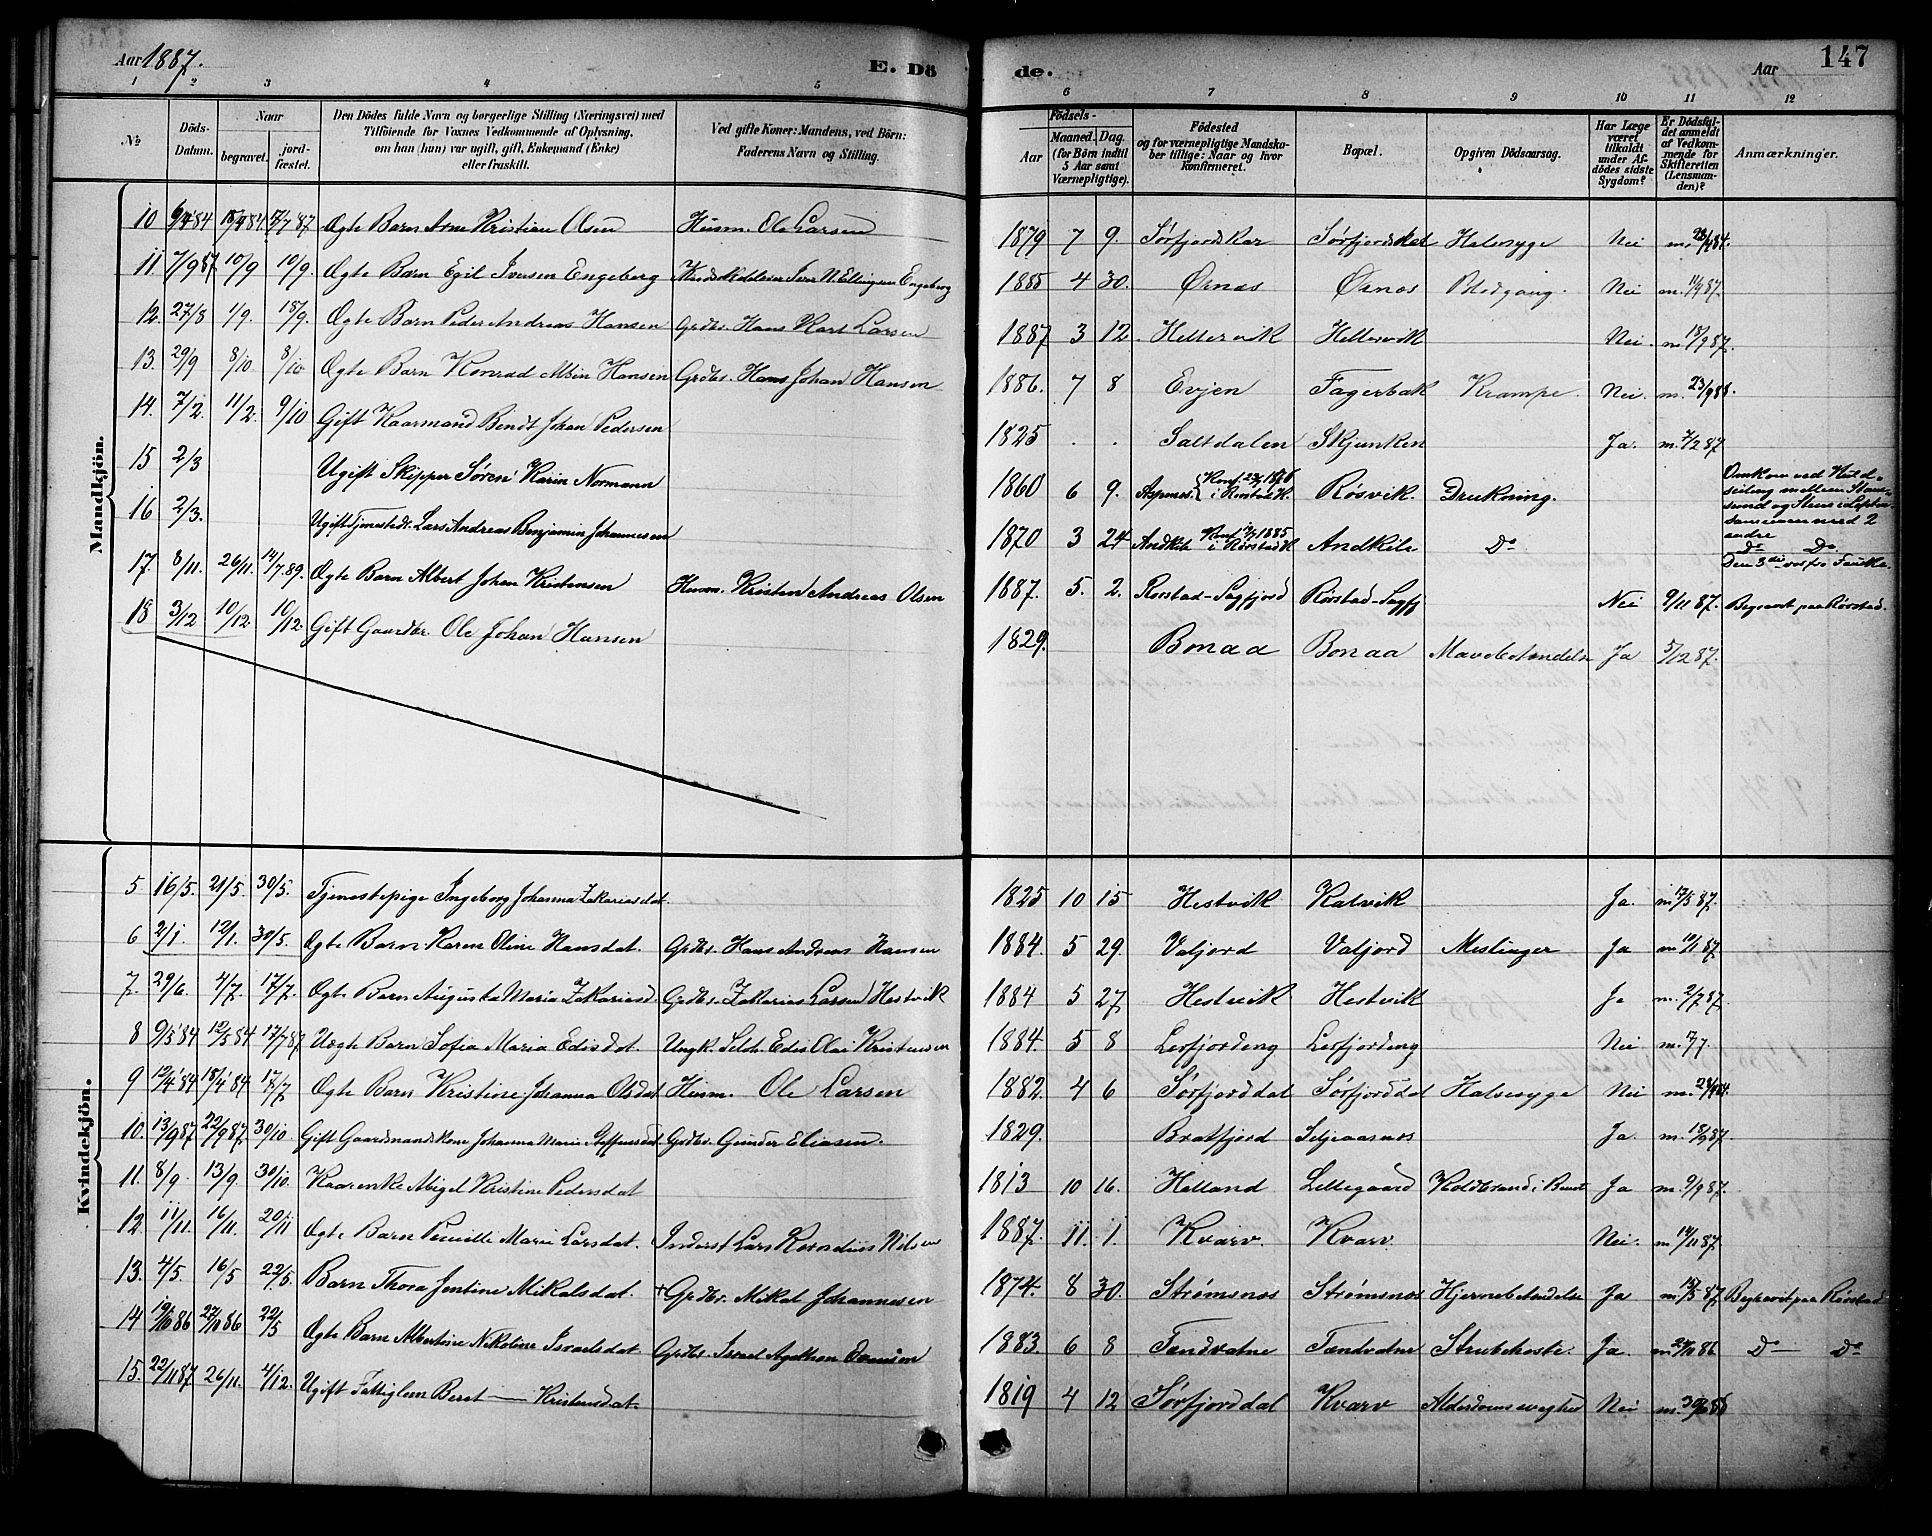 Aar 1887.
E. Dö
de.
Aar
147
1 2 3 4 5
6 7 8 9 10 11 12
№
Döds-Datum.
Naar
begravet.
jord-fæstet.
Den Dödes fulde Navn og borgerlige Stilling (Næringsvei) med
Tilföiende for Voxnes Vedkommende af Oplysning,
om han (hun) var ugift, gift, Enkemand (Enke)
eller fraskilt.
Ved gifte Koner: Mandens, ved Börn:
Faderens Navn og Stilling.
Födsels-
Aar
Maaned. Dag.
(for Börn indtil
5 Aar samt
Værnepligtige).
Födested
og for værnepligtige Mandska-
ber tillige: Naar og hvor
konfirmeret.
Bopæl.
Opgiven Dödsaarsag.
Har Læge
været
tilkaldt
under Af-
dödes sidste
Sygdom?
Er Dödsfal-
det anmeldt
af Vedkom-
mende for
Skifteretten
(Lensman-
den)?
Anmærkninger.
Mandkjön.
10 Ægte Barn Arne Kristian Olsen Husm. Ole Larsen 1879 7 9. Sørfjordskar Halssyge Nei
11. 7/9 87 10/9 10/9. Ægte Barn Egil Iversen Engeberg Engeberg 1885 4 30. Ørnæs Ørnæs Blodgang. Nei m. 11/9 87.
12. 27/8 1/9. 18/9. Ægte Barn Peder Andreas Hansen Grdbr. Hans Karl Larsen 1887 3 12. Hellervik Hellervik Nei. m. 18/9 87.
13. 29/9 8/10. 8/10 Ægte Barn Konrad Albin Hansen Grdbr. Hans Johan Hansen 1886. 7 8 Evjen Fagerbak Krampe. Nei. m. 23/9 88.
14. 7/2. 11/2. 9/10 Gift Kaarmand Bendt Johan Pedersen 1825 . . Saltdalen Skjunken Ja. m. 7/2 87
15 2/3 Ugift Skipper Søren Karin Normann 1860 6 9. Aspenes. i Rørstad K. Røsvik. Drukning. Omkom ved Kuld-
seiling mellem Stam-
sund og Steine i Lofoten
sammen med 2
andre
16 2/3. Ugift Tjenestedr. Lars Andreas Benjamin Johannesen 1870 3 24 Andkile Konf. 1885 i Rørstad K. Andkile Do Do Do
Den 3die var fra Fauske.
17. 8/11. 26/11. 14/7 89. Ægte Barn Albert Johan Kristensen Husm. Kristen Andreas Olsen 1887. 5. 2. Rørstad-Sagfjord Rørstad-Sagfj Nei 9/11 87. Begravet paa Rørstad.
18 3/12 10/12. 10/12. Gift Gaardbr. Ole Johan Hansen 1829. Bonaa Bonaa Mavebetændelse Ja 5/12 87.
Kvindekjön.
5 16/5. 21/5. 30/5. Tjenestepige Ingeborg Johanna Zakariasdat. 1825 10 15 Hestvik Kalvik Ja. m. 17/5 87.
6 2/1. 12/1. 30/5. Ægte Barn Karen Oline Hansdat. Grdbr. Hans Andreas Hansen 1884. 5 29. Valjord Valjord Meslinger Ja m. 10/1 87.
7. 29/6. 4/7. 17/7. Ægte Barn Augusta Maria Zakariasd. Grdbr. Zakarias Larsen Hestvik 1884 5 27. Hestvik Hestvik Ja m. 2/7 87.
8 9/5 84 12/5 84 17/7 87 Uægte Barn Sofia Maria Edisdat. Ungk. Edis Olai Kristensen 1884. 5 8 Leifjordeng Leifjordeng Nei m. 7/7.
9 12/4 84 18/4 84 17/7 Ægte Barn Kristine Johanna Olsdat Husm. Ole Larsen 1882. 4 6 Sørfjorddal Sørfjorddal Halssyge Nei
10. 13/9 87 22/9 87. 30/10 Gift Gaardmandskone Johanna Marie Steffensdat Grdbr. Gunder Eliasen. 1829. Bratfjord Seljeaasnes Ja. m. 18/9 87.
11. 8/9. 13/9. 30/10. Kaarenke Abigel Kristine Pedersdat 1813 10 16. Holland Lillegaard Koldbrand i Benet Ja m. 9/9 87.
12. 11/11. 16/11. 20/11 Ægte Barn Pernille Marie Larsdat. Inderst Lars Kornelius Nilsen 1887. 11. 1. Kvarv Kvarv Nei. m. 14/11 87.
13. 4/5. 16/5 22/5. Barn Thora Jentine Mikalsdat. † Grdbr. Mikal Johannesen 1874. 8 30. Strømsnes Strømsnes Hjernebetændelse Ja Begravet paa Rørstad
14 19/10 86 27/10 86 22/5 Ægte Barn Albertine Nikoline Israelsdat Grdbr. Israel Agathon 1883. 6 8 Tændvatne Tændvatne Strubehoste. Ja. Do Do
15. 22/11 87 26/11. 4/12. Ugift Fattiglem Beret — Kristensdat. 1819 4 12 Sørfjorddal Kvarv Alderdomssvaghed Nei